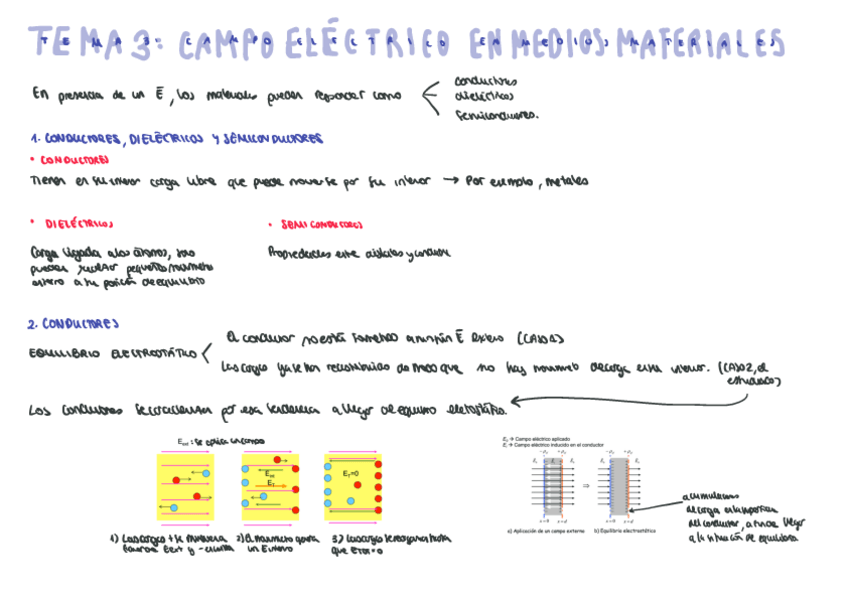 TEMA 3: CAMPO ELÉCTRICO EN MEDIOS MATERIALES
En presencia de un E, los materiales pueden responder como
conductores
dieléctricos
semiconductores.
1. CONDUCTORES, DIELÉCTRICOS Y SEMICONDUCTORES
• CONDUCTORES
Tienen en su interior carga libre que puede moverse por su interior → Por ejemplo, metales
• DIELÉCTRICOS
Carga ligada a los átomos, solo
pueden realizar pequeños movimientos
entorno a su posición de equilibrio
• SEMICONDUCTORES
Propiedades entre aislantes y conductores
2. CONDUCTORES
EQUILIBRIO ELECTROSTÁTICO
El conductor no está sometido a ningún E externo (CASO 1)
Las cargas ya se han redistribuido de modo que no hay movimiento de carga en su interior. (CASO 2, el
estudiado)
Los conductores se caracterizan por esa tendencia a llegar al equilibrio electrostático.
Eext : se aplica un campo
Eext
E
ET=0
1) Las cargas + se mueven a
favor de Eext y - en contra
2) El movimiento genera
un E interno
3) Las cargas se reorganizan hasta
que ETOT=0
E0 → Campo eléctrico aplicado
Ei → Campo eléctrico inducido en el conductor
⇒
x=0
x=d
x=0
x=d
a) Aplicación de un campo externo
b) Equilibrio electroestático
acumulaciones
de carga en la superficie
del conductor, al llegar
a la situación de equilibrio